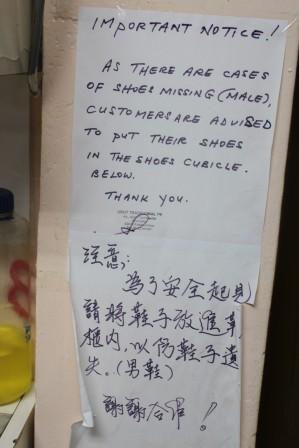 IMPORTANT NOTICE!
AS THERE ARE CASES
OF SHOES MISSING (MALE),
CUSTOMERS ARE ADVISED
TO PUT THEIR SHOES
IN THE SHOES CUBICLE.
BELOW.
THANK YOU.
注意:
為了安全起見
請將鞋子放進
櫃內,以防鞋子遺
失。(男鞋)
謝謝合作!